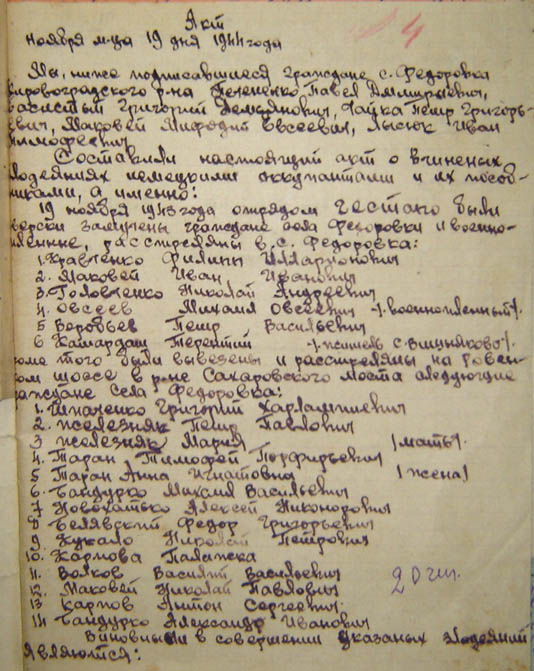 Акт
4
ноября м-ца 19 дня 1944 года
Мы, ниже подписавшиеся граждане с. Федоровка
ировоградского р-на Павел Дмитриевич,
Григорий Демьянович, Чайка Петр Григорь-
евич, Маковей Мифодий Евсеевич, Лысюк Иван
имофеевич
Составили настоящий акт о вчиненых
лодеяниях немецкими оккупантами и их пособ-
никами, а именно:
19 ноября 1943 года отрядом гестапо были
верски замучены граждане села Федоровки и военно-
пленные, расстреляны в с. Федоровка:
1. Кравченко Филипп Илларионович
2. Маковей Иван Иванович
3. Головченко Николай Андреевич
4. Овсеев Михаил Овсеевич -/. военнопленный/.
5 Воробьев Петр Васильевич
6 Камардаш Терентий -/. житель с. Вишняково/.
роме того были вывезены и расстреляны на Ровен-
ком шоссе в р-не Сахаровского моста следующие
раждане села Федоровка:
1. Шпаченко Григорий Харлампиевич
2. Железняк Петр Павлович
3 Железняк Мария /мать/.
4. Таран Тимофей Порфирьевич
5 Таран Анна Игнатовна /жена/
6. Бандурко Михаил Васильевич
7 Новохатько Алексей Никонорович
8 Белявский Федор Григорьевич
9 Кукало Николай Петрович
10. Карпова Палажка
11. Волков Василий Васильевич
12. Маковей Николай Павлович
13 Карпов Антон Сергеевич
14 Бандурко Александр Иванович
20 чел.
Виновными в совершении указаных злодеяний
являются: